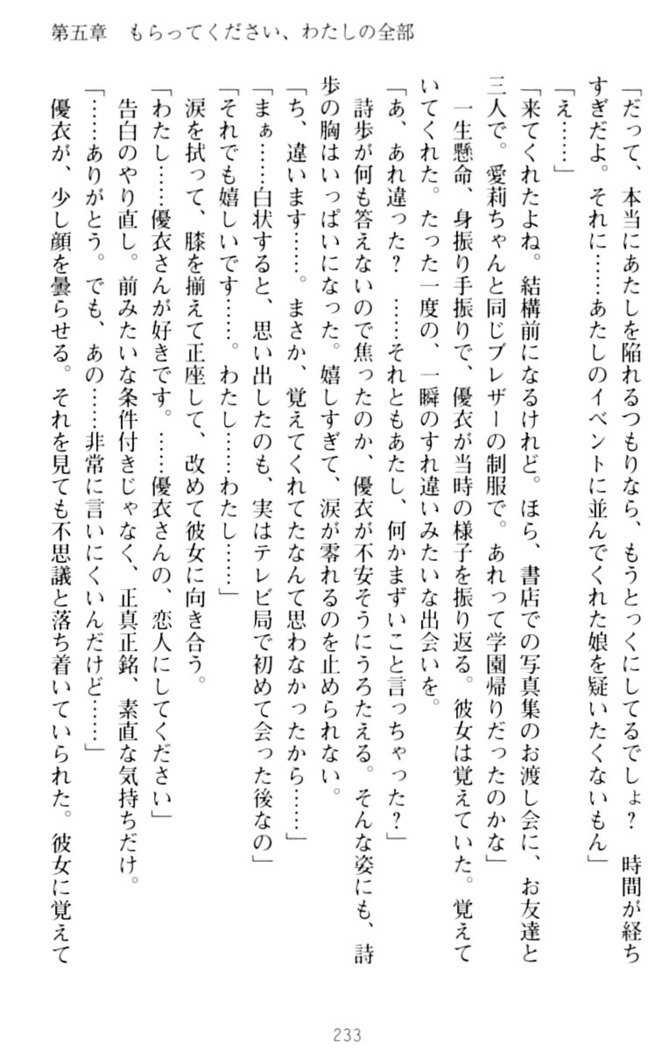 第五章　もらってください、わたしの全部
「だって、本当にあたしを陥れるつもりなら、もうとっくにしてるでしょ？　時間が経ち
すぎだよ。それに……あたしのイベントに並んでくれた娘を疑いたくないもん」
「え……」
「来てくれたよね。結構前になるけれど。ほら、書店での写真集のお渡し会に、お友達と
三人で。愛莉ちゃんと同じブレザーの制服で。あれって学園帰りだったのかな」
　一生懸命、身振り手振りで、優衣が当時の様子を振り返る。彼女は覚えていた。覚えて
いてくれた。たった一度の、一瞬のすれ違いみたいな出会いを。
「あ、あれ違った？　……それともあたし、何かまずいこと言っちゃった？」
　詩歩が何も答えないので焦ったのか、優衣が不安そうにうろたえる。そんな姿にも、詩
歩の胸はいっぱいになった。嬉しすぎて、涙が零れるのを止められない。
「ち、違います……。まさか、覚えてくれてたなんて思わなかったから……」
「まぁ……白状すると、思い出したのも、実はテレビ局で初めて会った後なの」
「それでも嬉しいです……。わたし……わたし……」
　涙を拭って、膝を揃えて正座して、改めて彼女に向き合う。
「わたし……優衣さんが好きです。……優衣さんの、恋人にしてください」
　告白のやり直し。前みたいな条件付きじゃなく、正真正銘、素直な気持ちだけ。
「……ありがとう。でも、あの……非常に言いにくいんだけど……」
　優衣が、少し顔を曇らせる。それを見ても不思議と落ち着いていられた。彼女に覚えて
233